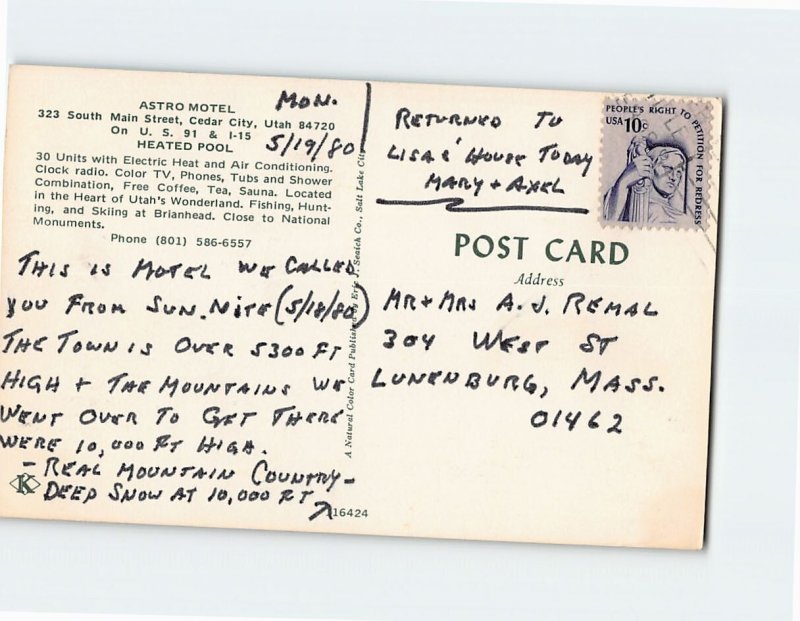 ASTRO MOTEL
323 South Main Street, Cedar City, Utah 84720
On U. S. 91 & I-15
HEATED POOL
30 Units with Electric Heat and Air Conditioning.
Clock radio. Color TV, Phones, Tubs and Shower
Combination, Free Coffee, Tea, Sauna. Located
in the Heart of Utah's Wonderland. Fishing, Hunt-
ing, and Skiing at Brianhead. Close to National
Monuments.
Phone (801) 586-6557
MON.
5/19/80
THIS IS MOTEL WE CALLED
YOU FROM SUN. NITE (5/18/80)
THE TOWN IS OVER 5300 FT
HIGH + THE MOUNTAINS WE
WENT OVER TO GET THERE
WERE 10,000 FT HIGH.
- REAL MOUNTAIN COUNTRY -
DEEP SNOW AT 10,000 FT
K
116424
A Natural Color Card Published by Eric J. Seaich Co., Salt Lake City
RETURNED TO
LISA'S HOUSE TODAY
MARY + AXEL
PEOPLE'S RIGHT TO PETITION FOR REDRESS
USA 10c
POST CARD
Address
MR + MRS A. J. REMAL
304 WEST ST
LUNENBURG, MASS.
01462